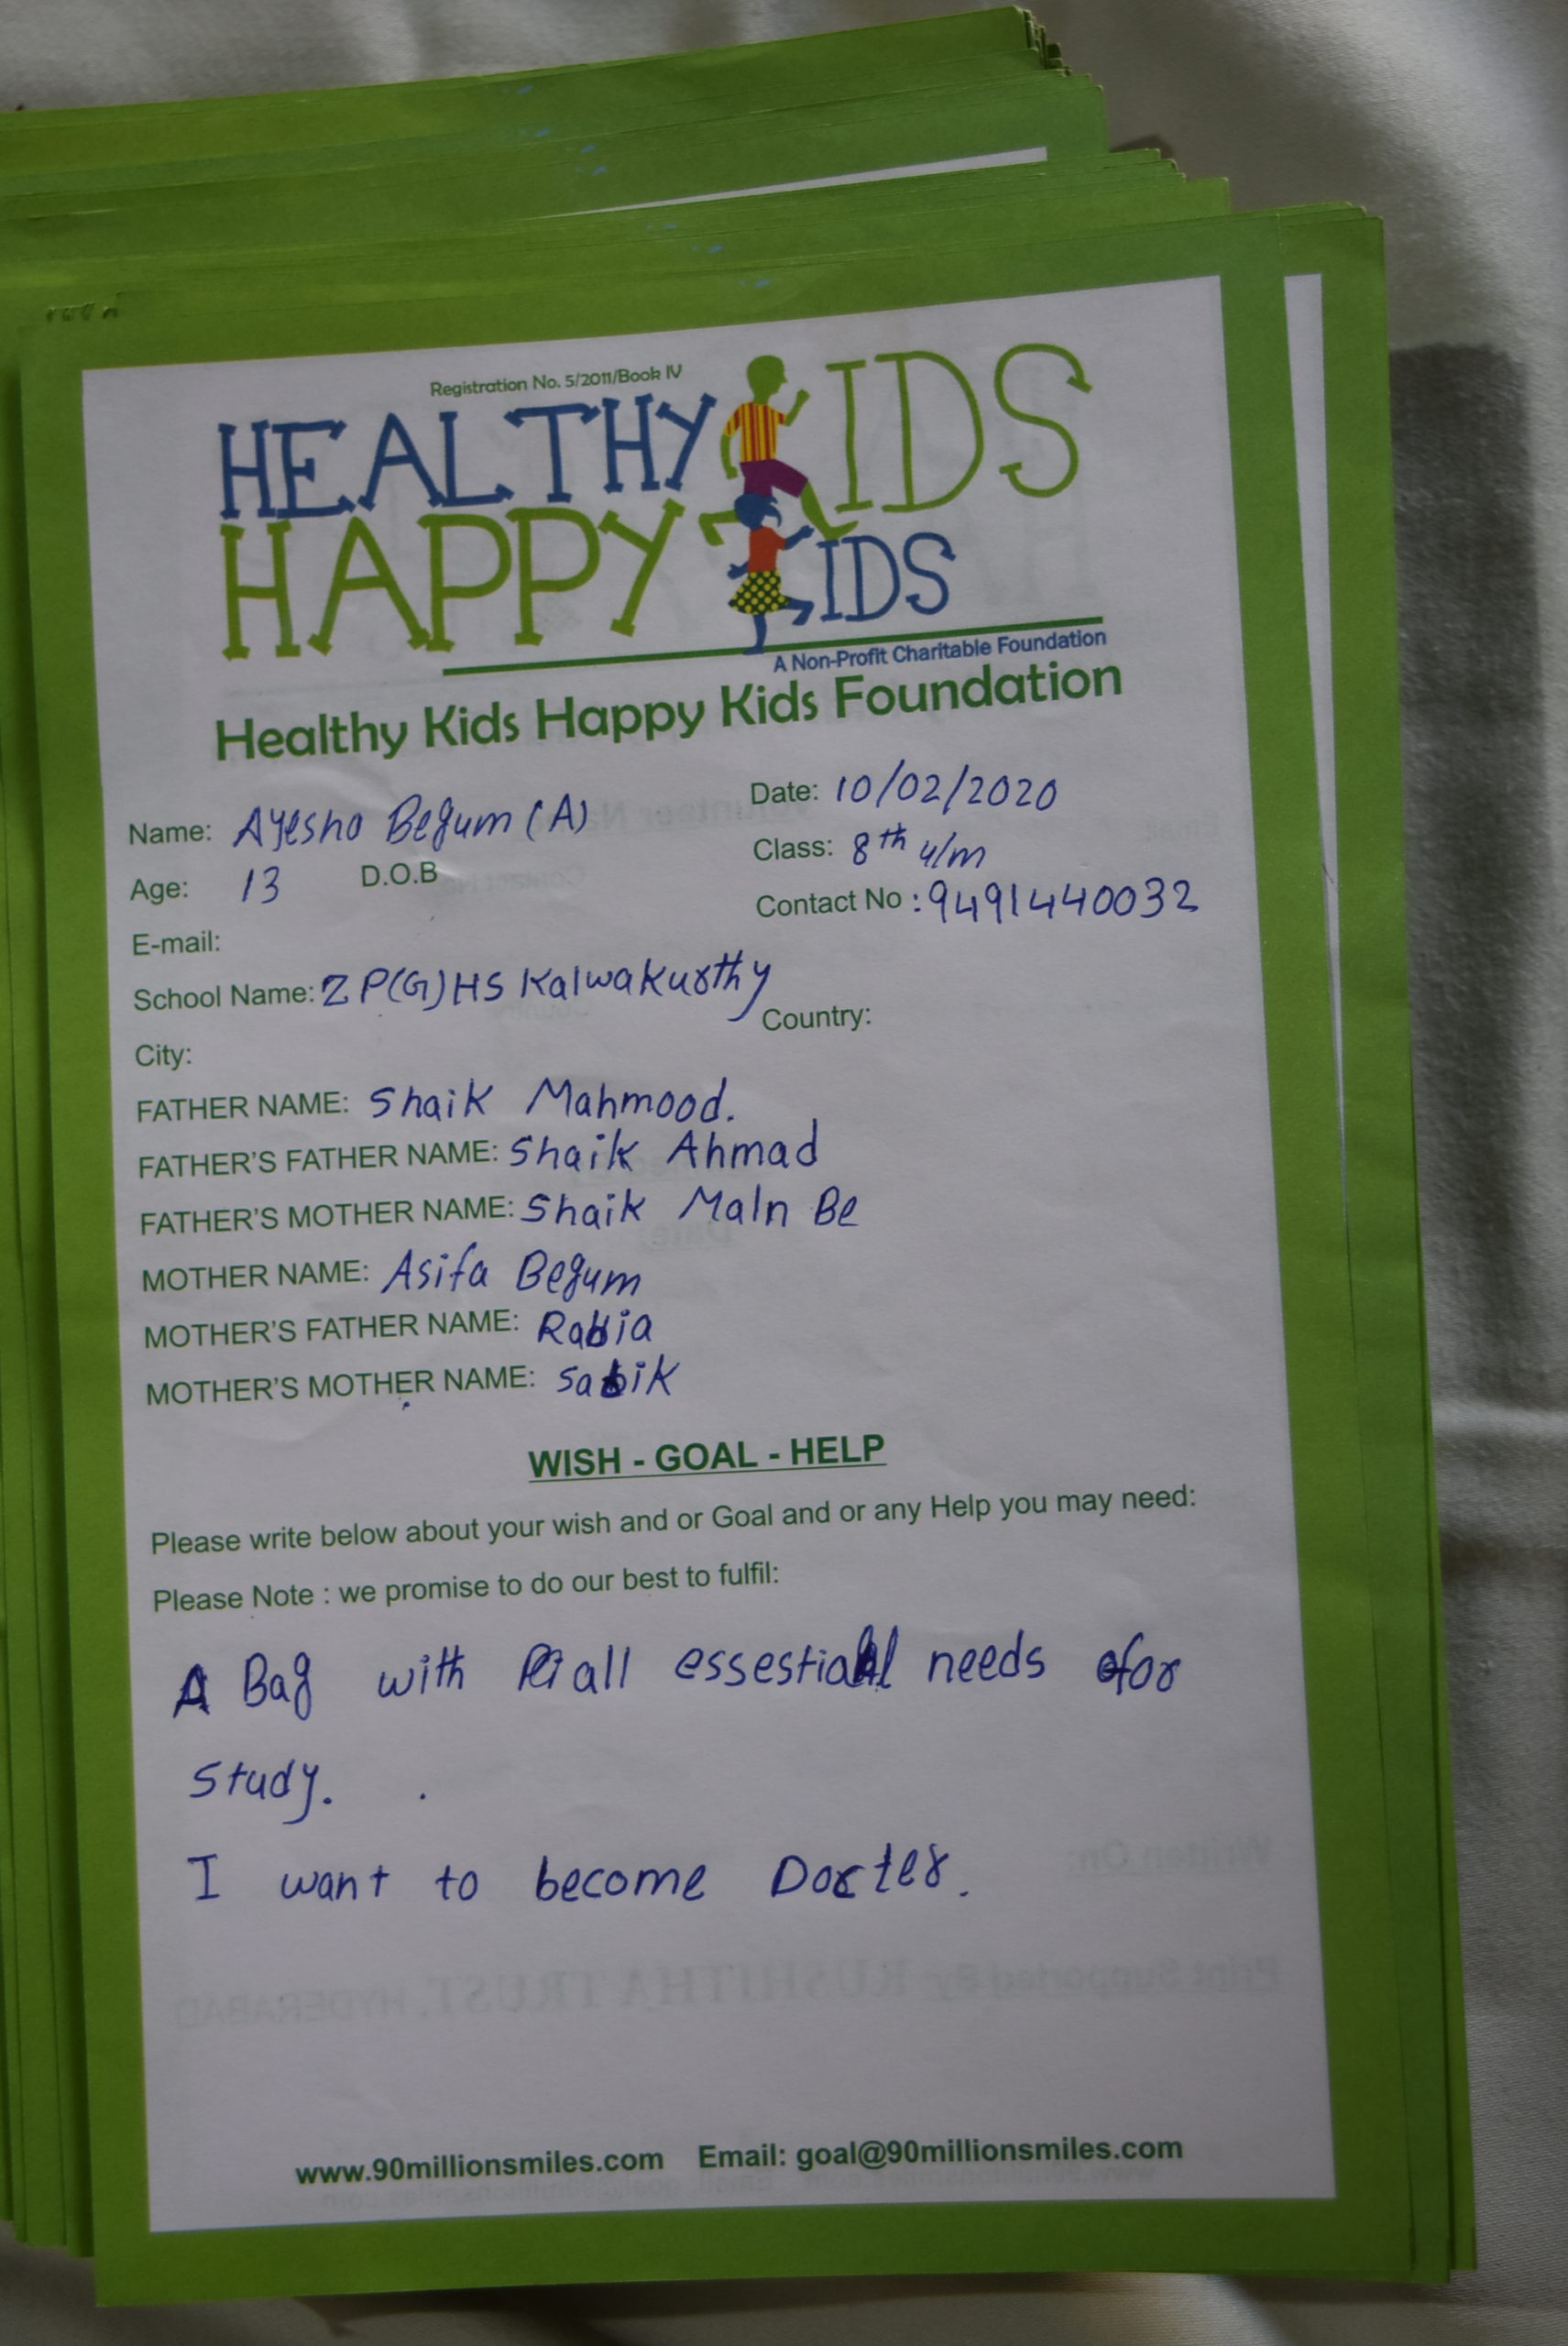 Registration No. 5/2011/Book IV
HEALTHY KIDS
HAPPY KIDS
A Non-Profit Charitable Foundation
Healthy Kids Happy Kids Foundation
Name: Ayesha Begum (A)
Date: 10/02/2020
Age: 13 D.O.B
Class: 8th u/m
Contact No : 9491440032
E-mail:
School Name: Z P(G) HS Kalwakurthy
Country:
City:
FATHER NAME: Shaik Mahmood.
FATHER'S FATHER NAME: Shaik Ahmad
FATHER'S MOTHER NAME: Shaik Maln Be
MOTHER NAME: Asifa Begum
MOTHER'S FATHER NAME: Rabia
MOTHER'S MOTHER NAME: Sabik
WISH - GOAL - HELP
Please write below about your wish and or Goal and or any Help you may need:
Please Note : we promise to do our best to fulfil:
A Bag with all essestial needs for
study.
I want to become Docter.
www.90millionsmiles.com Email: goal@90millionsmiles.com